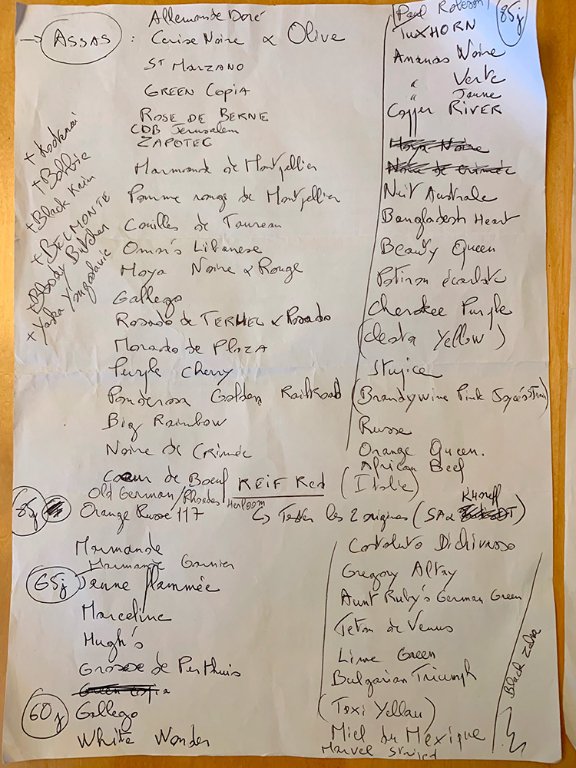 Allemande Doré
→ ASSAS : Cerise Noire & Olive
St MARZANO
GREEN Copia
ROSE DE BERNE
CDB Jerusalem
ZAPOTEC
Marmande de Montpellier
Pomme rouge de Montpellier
Couilles de Taureau
Omar's Libanese
Moya Noire & Rouge
Gallego
Rosado de TERMEL & Rosado
Morado de PLAZA
Purple Cherry
Ponderosa Golden Railroad
Big Rainbow
Noire de Crimée
Cœur de Boeuf REIF Red
Old German / Rhoades Heirloom
85j Orange Russe 117 ↳ Tester les 2 origines (SA &
Marmande
Marmande Garnier
65j Jaune flammée
Marceline
Hugh's
Grosse de Perthuis
60j Gallego
White Wonder
+ Kootenai
+ Bolotie
+ Black Krim
+ BELMONTE
+ Bloody Butcher
+ Yaska Yougoslavie
Paul Robeson
85j
TUXHORN
Ananas Noire
" Verte
" Jaune
Copper RIVER
Moya Noire
Noire de Crimée
Nuit Australe
Bangladesh Heart
Beauty Queen
Potiron écarlate
Cherokee Purple
(Cuesta Yellow)
Stupice
(Brandywine Pink
Russe
Orange Queen.
African Beef
(Italie)
Costoluto
Gregory Altay
Aunt Ruby's German Green
Teton de Venus
Lime Green
Bulgarian Triumph
(Taxi Yellow)
Miel du Mexique
Marvel Striped
Black Zebra